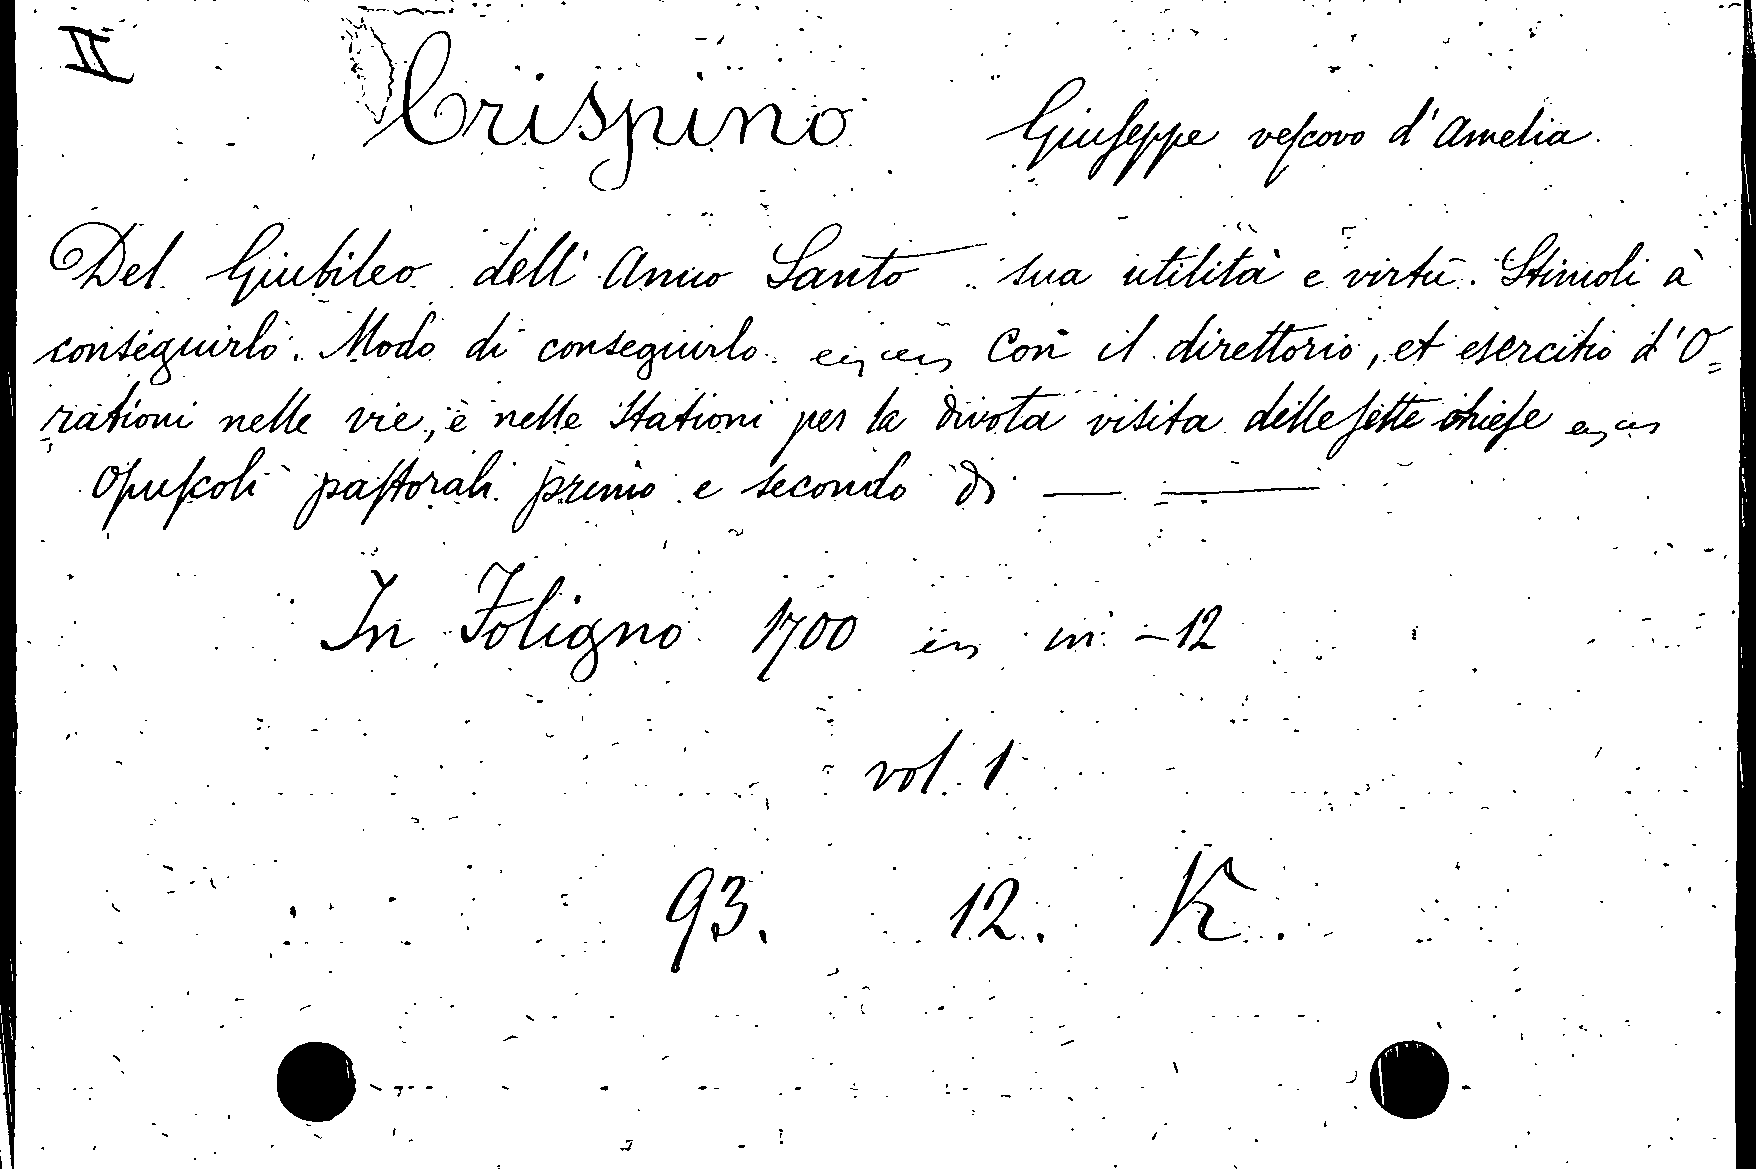 II
Crispino Giuseppe vescovo d'Amelia.
Del Giubileo dell'Anno Santo sua utilità e virtù. Stimoli à
conseguirlo. Modo di conseguirlo Con il direttorio, et esercitio d'O=
rationi nelle vie, è nelle Stationi per la divota visita delle sette chiese
opuscoli pastorali primo e secondo di — —
In Foligno 1700 in in -12
vol. 1
93. 12. K.